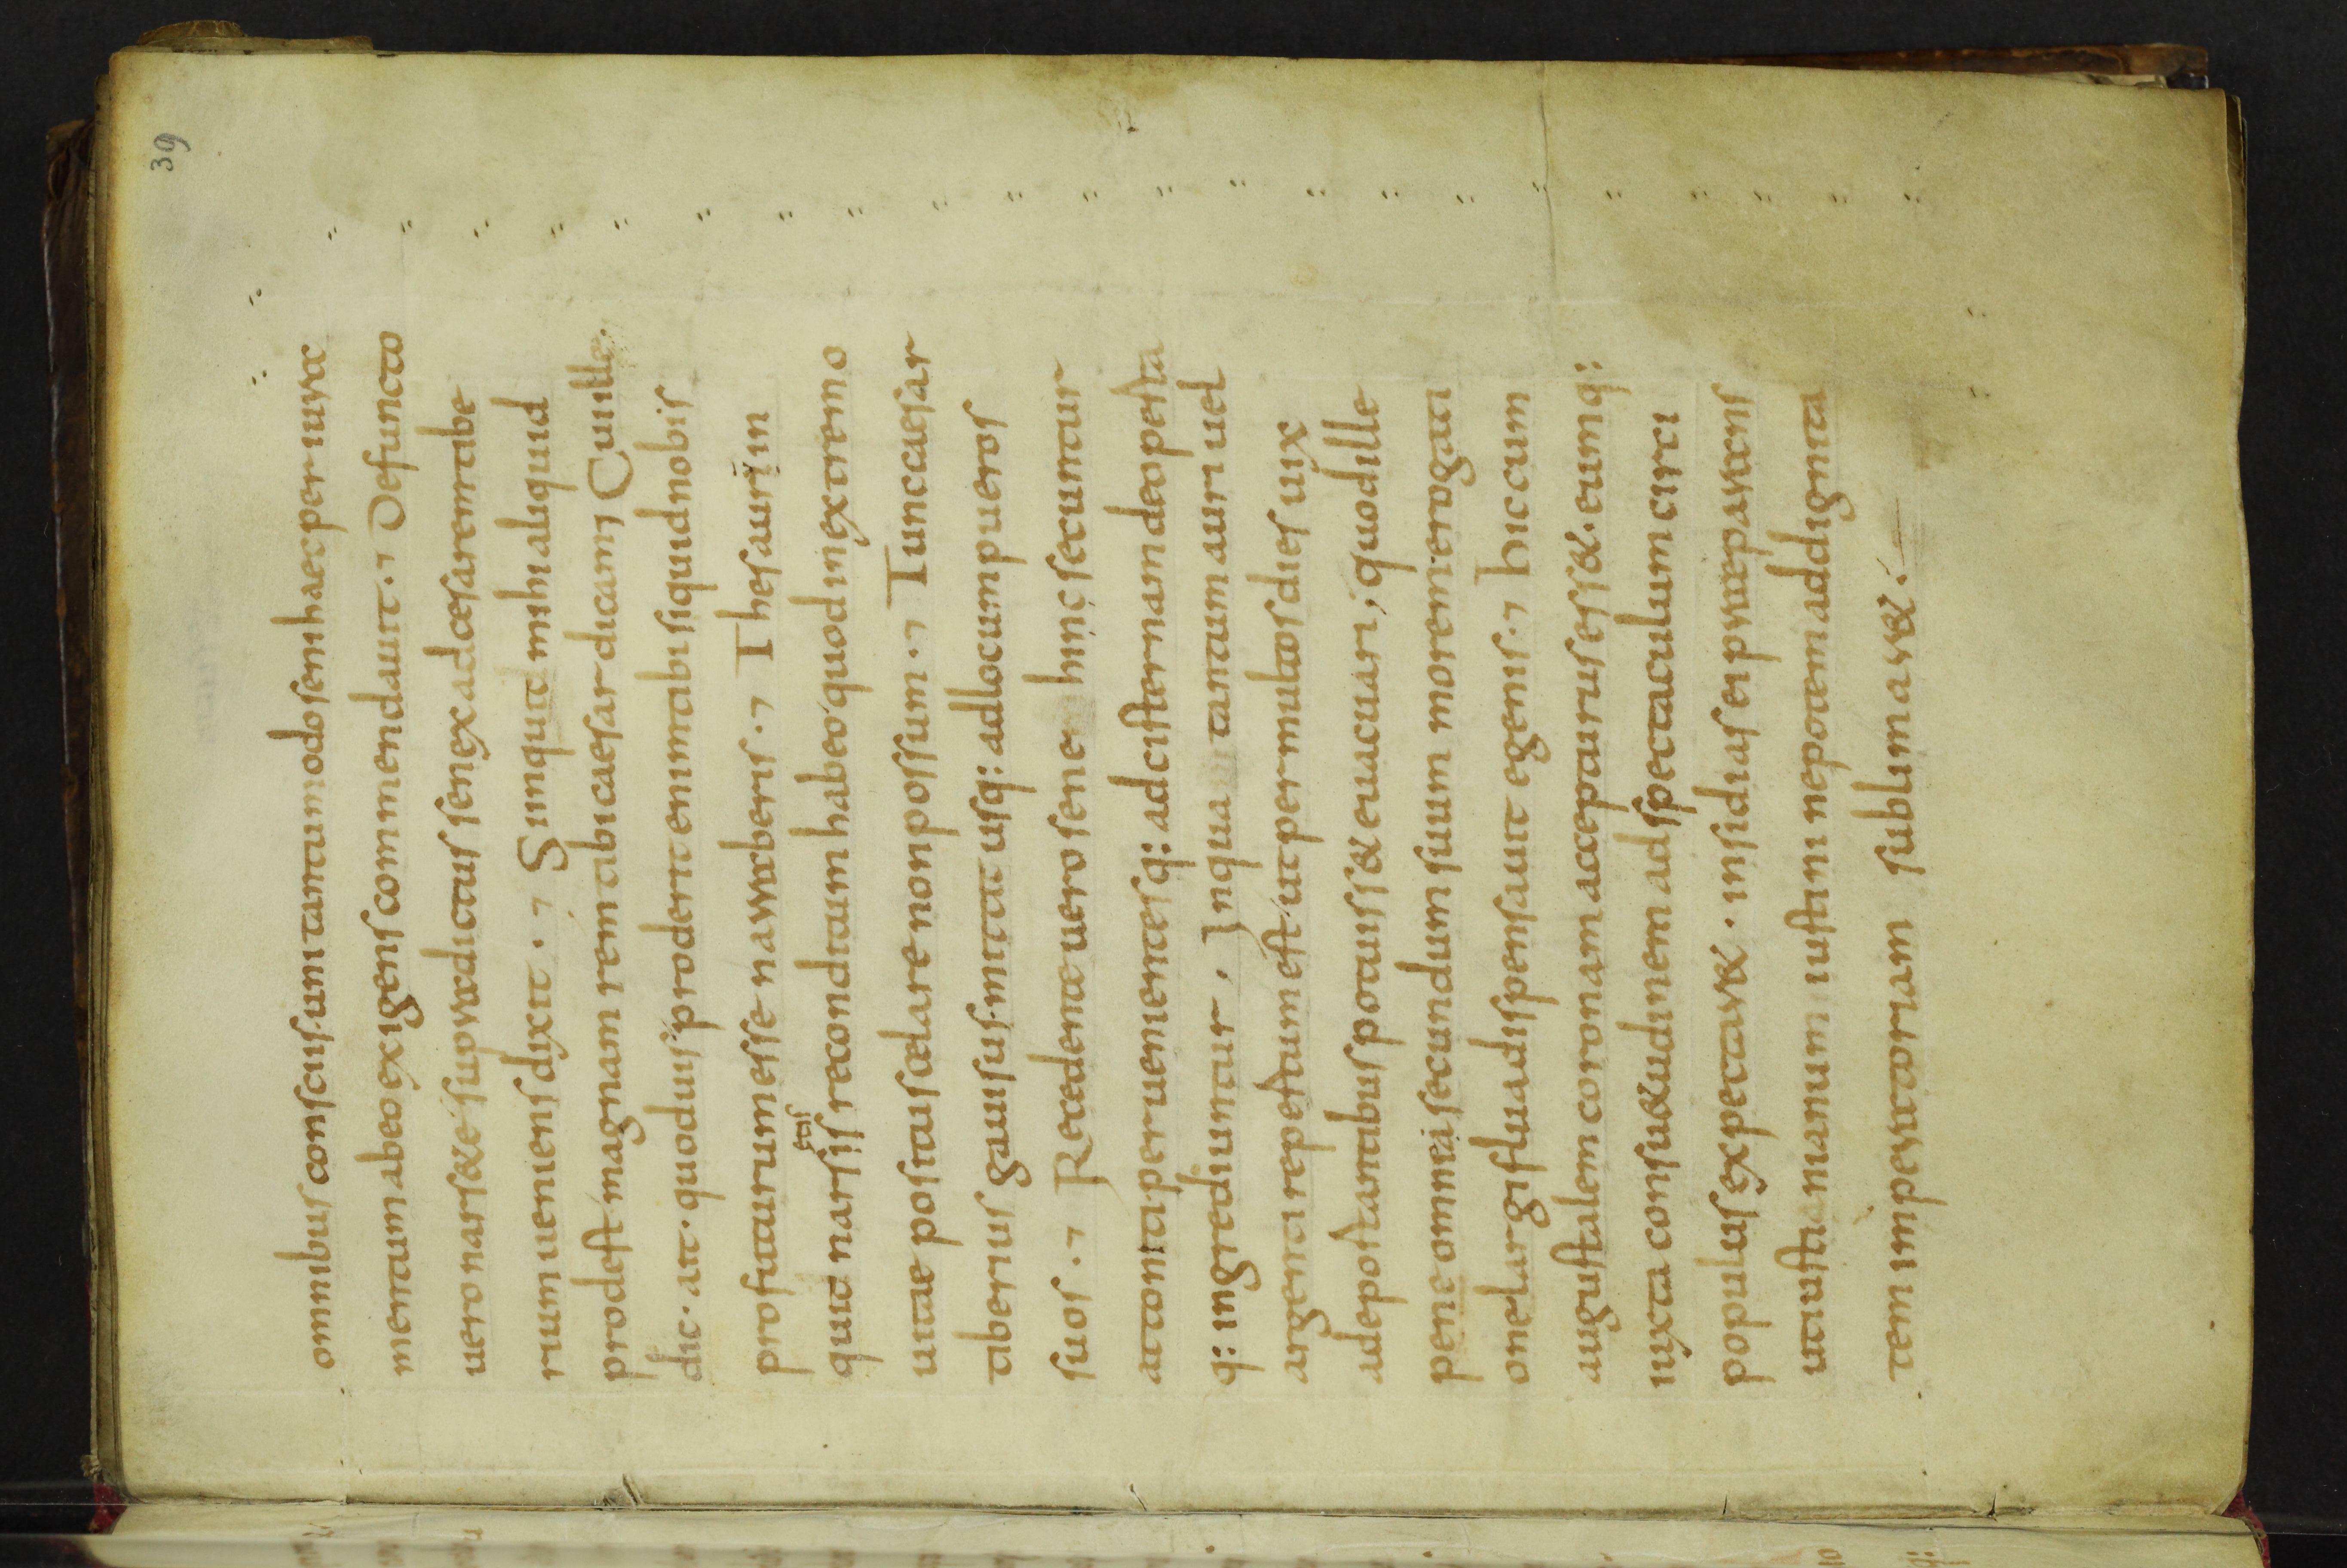 39
omnibus conscius. uni tantummodo seni haec per iura
mentum ab eo exigens commendauit.·,⁊ Defuncto
uero narsete. supradictus senex ad caesarem tibe
rium ueniens dixit.·,⁊ Si inquit mihi aliquid
prodest magnam rem tibi caesar dicam; Cui ille.
dic. ait. quod uis proderit enim tibi si quid nobis
profuturum esse narraberis.·,⁊ Thesaurum in
etis
quit narsis reconditum habeo quod in extremo
uitae positus celare non possum.·,⁊ Tunc caesar
tiberius gauisus. mittit usq: ad locum pueros
suos.·,⁊ Recedente uero sene hinc secuntur
attoniti peruenientesq: ad cisternam deopesta
q: ingrediuntur, In qua tantum auri uel
argenti repestum est ut per multos dies uix
a depostantibus potuisset euacuari; quod ille
pene omnia secundum suum morem erogati
one largiflua dispensauit egenis.·,⁊ hic cum
augustalem coronam accepturus esset. eumq:
iuxta consuetudinem ad spectaculum circi
populus expectaret. insidias ei praeparans
ut iustinianum iustini nepotem ad dignita
tem imperatoriam sublimaret.